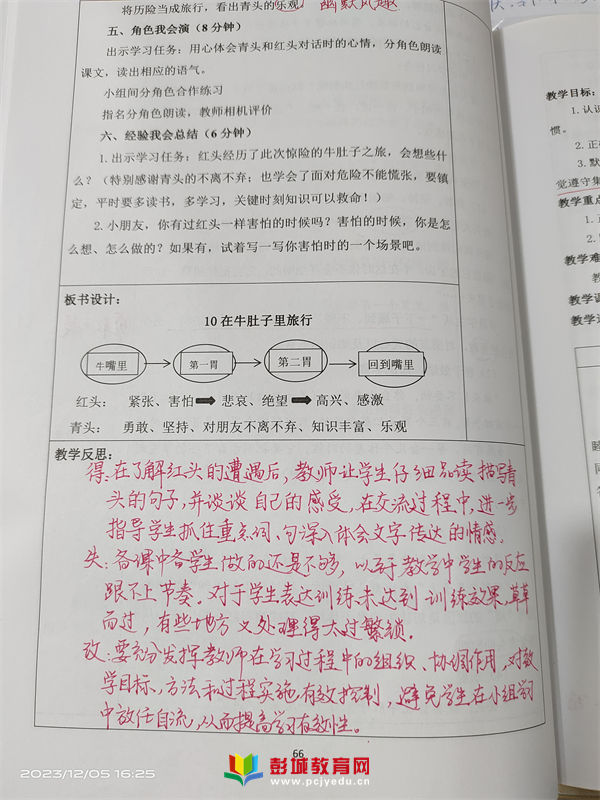 将历险当成旅行，看出青头的乐观 幽默风趣
五、角色我会演（8 分钟）
出示学习任务：用心体会青头和红头对话时的心情，分角色朗读
课文，读出相应的语气。
小组间分角色合作练习
指名分角色朗读，教师相机评价
六、经验我会总结（6 分钟）
1.出示学习任务：红头经历了此次惊险的牛肚子之旅，会想些什
么？（特别感谢青头的不离不弃；也学会了面对危险不能慌张，要镇
定，平时要多读书，多学习，关键时刻知识可以救命！）
2.小朋友，你有过红头一样害怕的时候吗？害怕的时候，你是怎
么想、怎么做的？如果有，试着写一写你害怕时的一个场景吧。
板书设计：
10 在牛肚子里旅行
牛嘴里 第一胃 第二胃 回到嘴里
红头： 紧张、害怕 悲哀、绝望 高兴、感激
青头： 勇敢、坚持、对朋友不离不弃、知识丰富、乐观
教学反思：
得：在了解红头的遭遇后，教师让学生仔细品读描写青
头的句子，并谈谈自己的感受，在交流过程中，进一步
指导学生抓住重点词、句深入体会文字传达的情感。
失：备课中备学生做的还是不够，以至于教学中学生的反应
跟不上节奏。对于学生表达训练未达到训练效果，草草
而过，有些地方又处理得太过繁锁。
改：要充分发挥教师在学习过程中的组织、协调作用，对教
学目标、方法和过程实施有效控制，避免学生在小组学习
中放任自流，从而提高学习有效性。
66
教学目标：
1.认识
惯。
2.正确
3.默
觉遵守集
教学重点
1.正
2.
教学难
教学
教学过
2023/12/05 16:25
彭城教育网
www.pcjyedu.cn